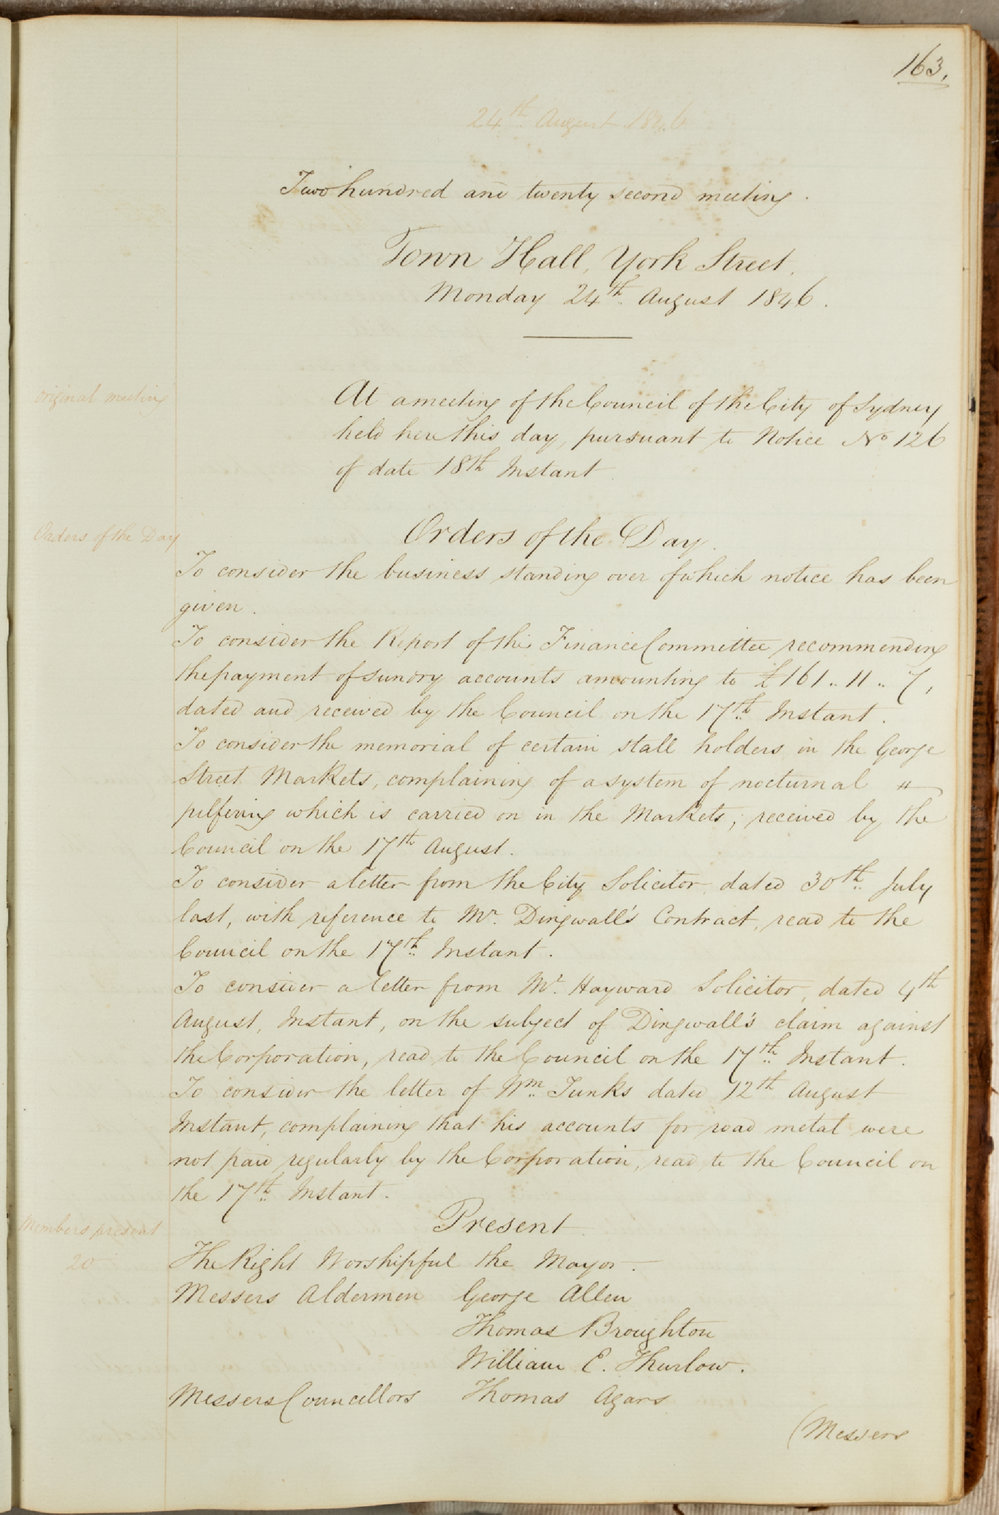 163.
24th August 1846
Two hundred and twenty second meeting.
Town Hall, York Street.
Monday 24th August 1846.
Original meeting
At a meeting of the Council of the City of Sydney
held here this day, pursuant to Notice No 126
of date 18th Instant
Orders of the Day
Orders of the Day.
To consider the business standing over of which notice has been
given.
To consider the Report of the Finance Committee recommending
the payment of sundry accounts amounting to £161.. 11.. 7,
dated and received by the Council on the 17th Instant.
To consider the memorial of certain stall holders in the George
Street Markets, complaining of a system of nocturnal
pilfering which is carried on in the Markets; received by the
Council on the 17th August.
To consider a letter from the City Solicitor, dated 30th July
last, with reference to Mr. Dingwall's Contract, read to the
Council on the 17th Instant.
To consider a letter from Mr. Hayward Solicitor, dated 4th
August, Instant, on the subject of Dingwall's claim against
the Corporation, read to the Council on the 17th Instant.
To consider the letter of Wm. Tunks dated 12th August
Instant, complaining that his accounts for road metal were
not paid regularly by the Corporation, read to the Council on
the 17th Instant.
Members present
20
Present
The Right Worshipful the Mayor.
Messers Aldermen George Allen
Thomas Broughton
William E. Thurlow.
Messers Councillors Thomas Agars
(Messers